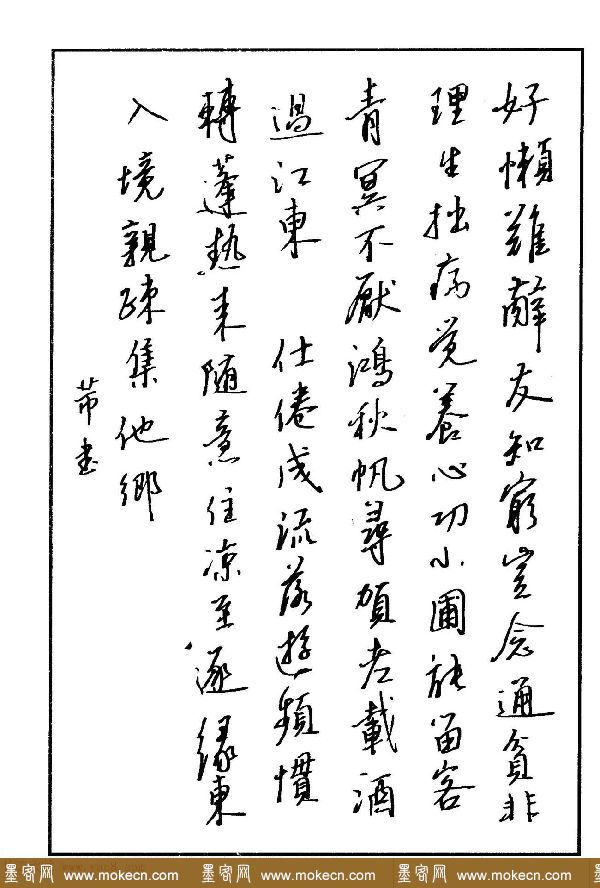 好懶難辭友知窮豈念通貧非
理生拙病覺養心功小圃能留客
青冥不厭鴻秋帆尋賀老載酒
過江東 仕倦成流落遊頻慣
轉蓬熱来随意住凉至逐緣東
入境親疎集他鄉
芾書
墨客网 www.mokecn.com 墨客网 www.mokecn.com 墨客网 www.mokecn.com 墨客网